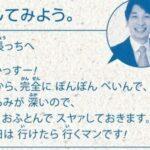 してみよう。
長っちへ
いっすー!
から、完全に ぽんぽん ぺいんで、
るみが 深いので、
おふとんで スヤァしておきます。
日は 行けたら 行くマンです!